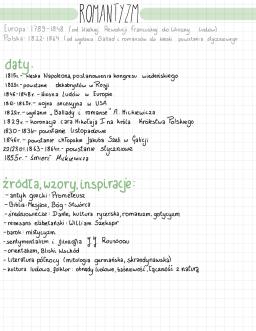 ROMANTYZM
Europa 1789-1848 (od Wielkiej Rewolucji Francuskiej do Wiosny Ludów)
Polska: 1822-1864 (od wydania Ballad i romansów do klęski powstania styczniowego
daty:
1815r. - klęska Napoleona, postanowienia kongresu wiedeńskiego
1825r - powstanie dekabrystów w Rosji
1846-1848r. - Wiosna Ludów w Europie
1861-1865r. - wojna secesyjna w USA
1822r. - wydanie „Ballady i romanse" A. Mickiewicza
1829r. - koronacja cara Mikołaja I na króla Królestwa Polskiego
1830-1831r - powstanie listopadowe
1846r. - powstanie chłopskie Jakuba Szeli w Galicji
22/23.01.1863-1864r. - powstanie styczniowe
1855r. - śmierć Mickiewicza
źródła, wzory, inspiracje:
- antyk grecki: Prometeusz
- Biblia: Mesjasz, Bóg-Stwórca
- średniowiecze: Dante, kultura rycerska, romanizm, gotycyzm
- renesans elżbietański: William Szekspir
- barok: mistycyzm
- sentymentalizm i filozofia J.J. Rousseau
- orientalizm, Bliski Wschód
- literatura północy (mitologia germańska, skandynawska)
- kultura ludowa, folklor: obrzędy ludowe, baśniowość, łączność z naturą